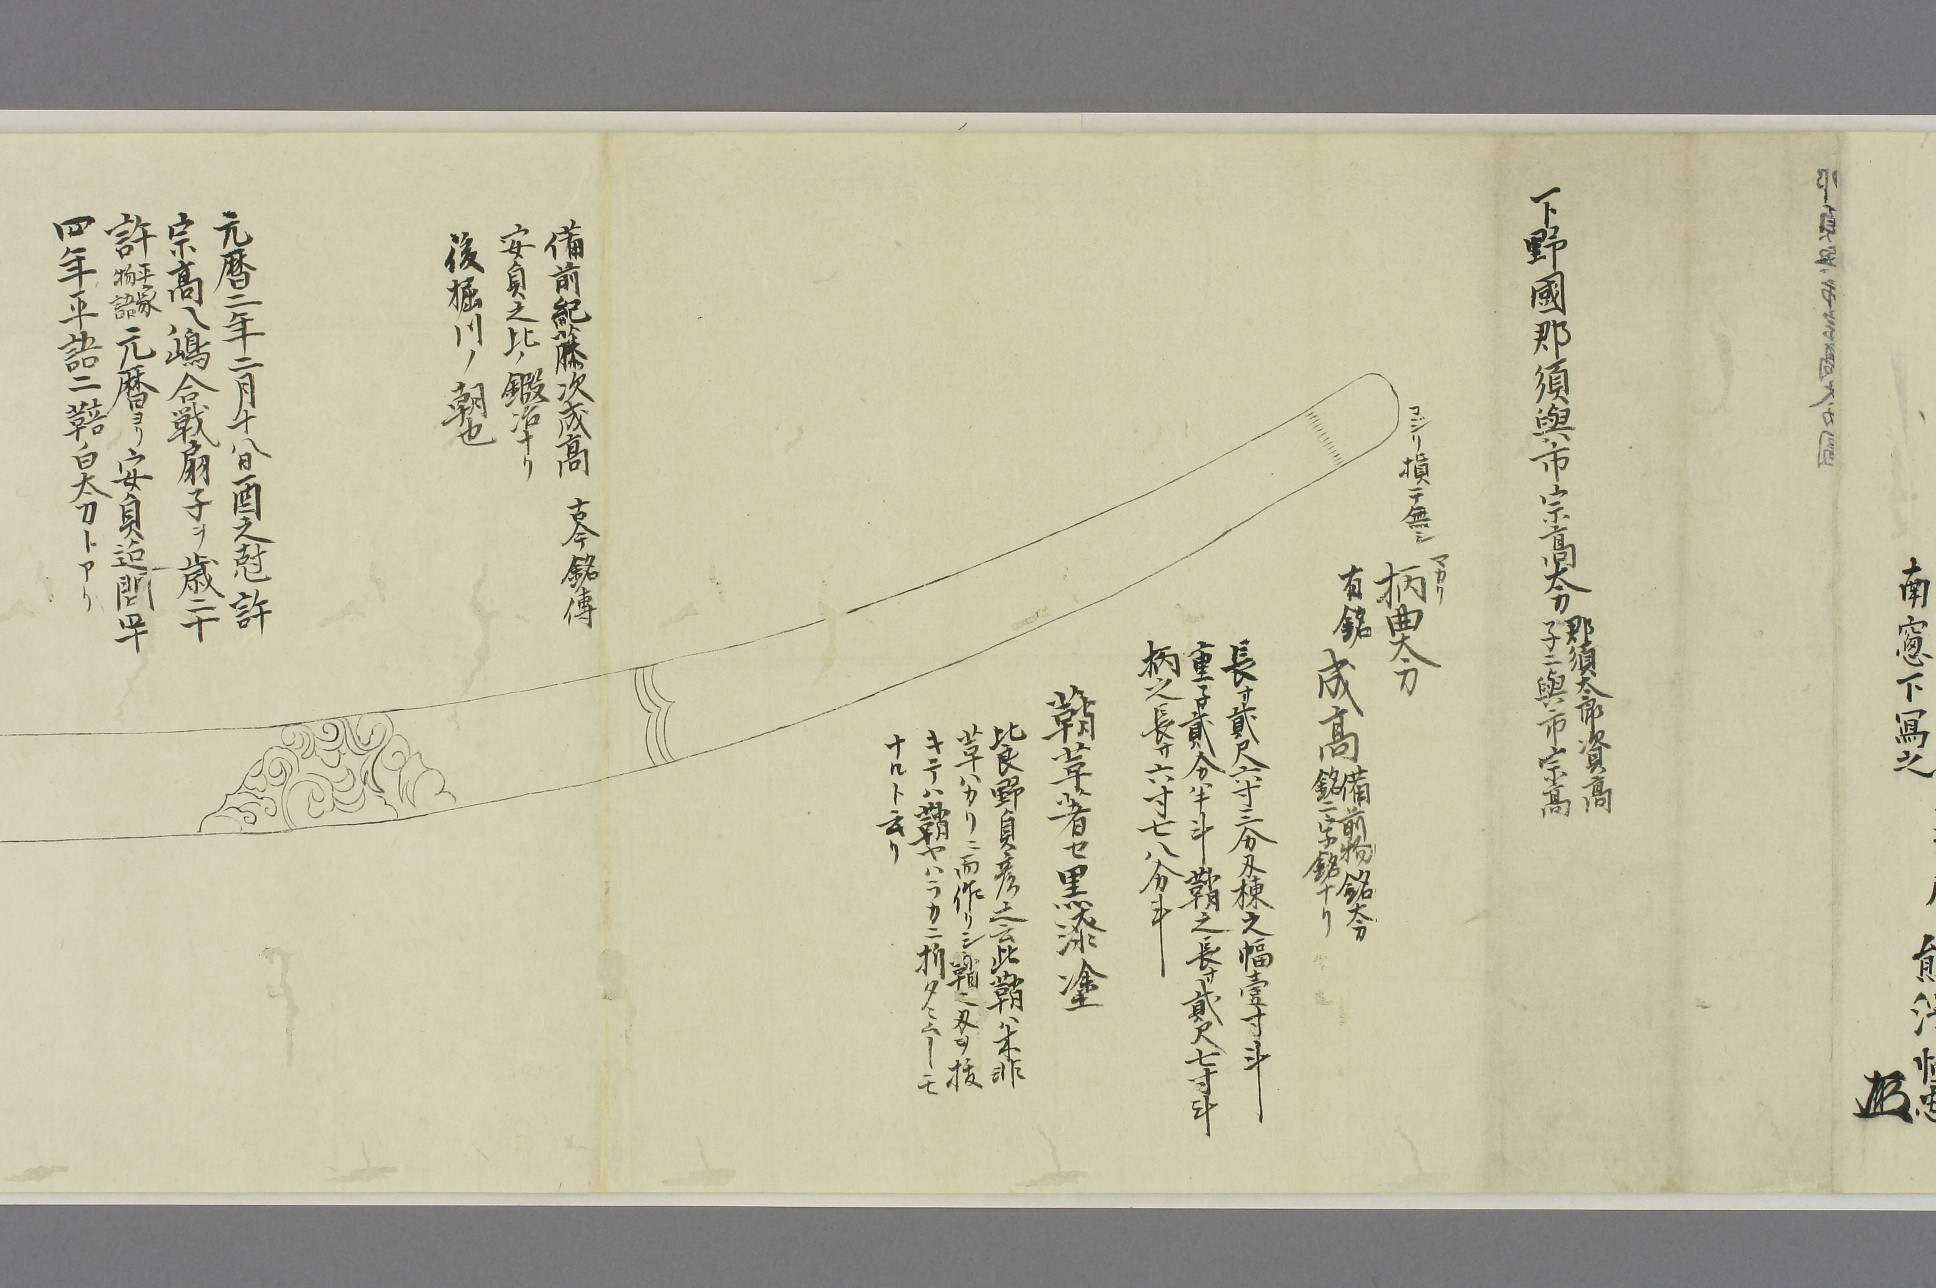 南窓下写之
下野國那須與市宗高太刀
那須太郎資高
子ニ與市宗高
コジリ損テ無シ
マカリ
柄曲太刀
有銘 成高
備前物銘太刀
銘ニ字銘ナリ
長サ貳尺六寸三分刃棟之幅壹寸斗
重子貳分半斗鞘之長サ貳尺七寸斗
柄之長サ六寸七八分斗
鞘革着セ黒漆塗
比良野貞彦之云此鞘ハ木非
革ハカリニ而作リシ鞘ニ刃ヲ抜
キテハ鞘ヤハラカニ折タミ
ナロト云リ
備前紀藤次成高 古今銘傳
安貞之比ノ鍛冶ナリ
後堀川ノ朝也
元暦二年二月十八日酉之尅許
宗高八嶋合戦扇子ヲ 歳二十
許 平家物語 元暦ヨリ安貞迄間四十
四年平語ニ 白太刀トアリ